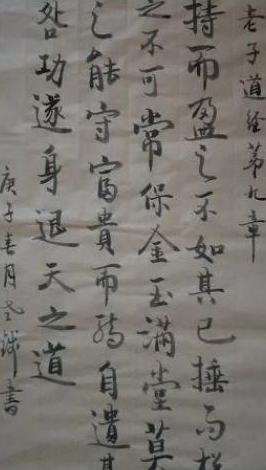 老子道經第九章
持而盈之不如其已捶而
之不可常保金玉滿堂莫
之能守富貴而驕自遺其
咎功遂身退天之道
庚子春月書